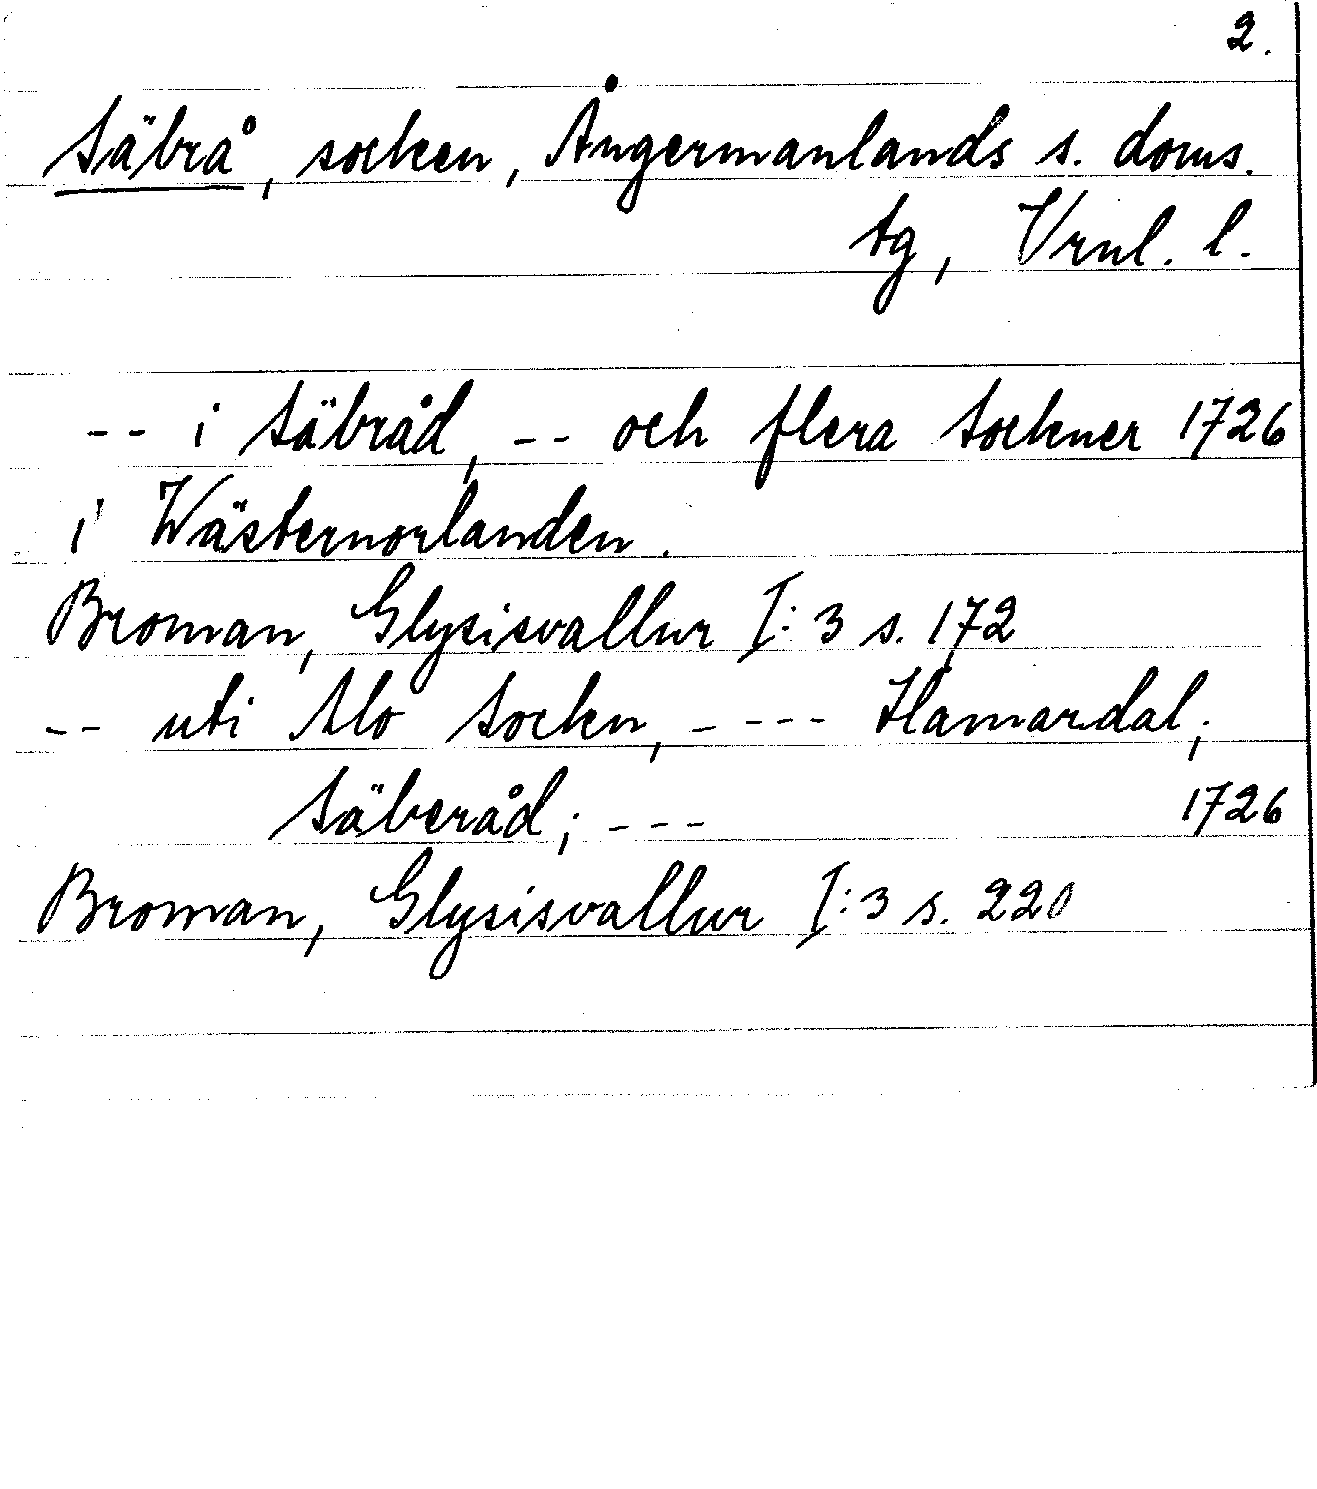 2.
Säbrå, socken, Ångermanlands s. doms.
tg, Vrnl. l.
-- i Säbråd, -- och flera Sockner 1726
i Wästernorlanden.
Broman, Glysisvallur I:3 s. 172
-- uti Alo Sockn, - --- Hamardal;
Säberåd; --- 1726
Broman, Glysisvallur I:3 s. 220